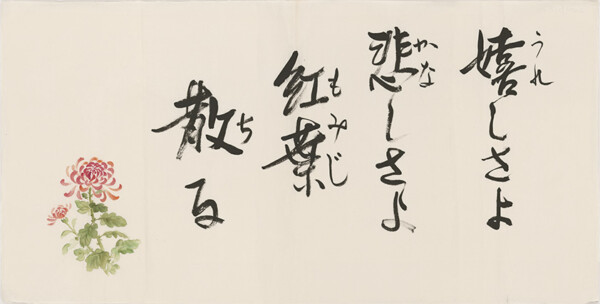 うれ
嬉しさよ
かな
悲しさよ
もみじ
紅葉
ち
散る